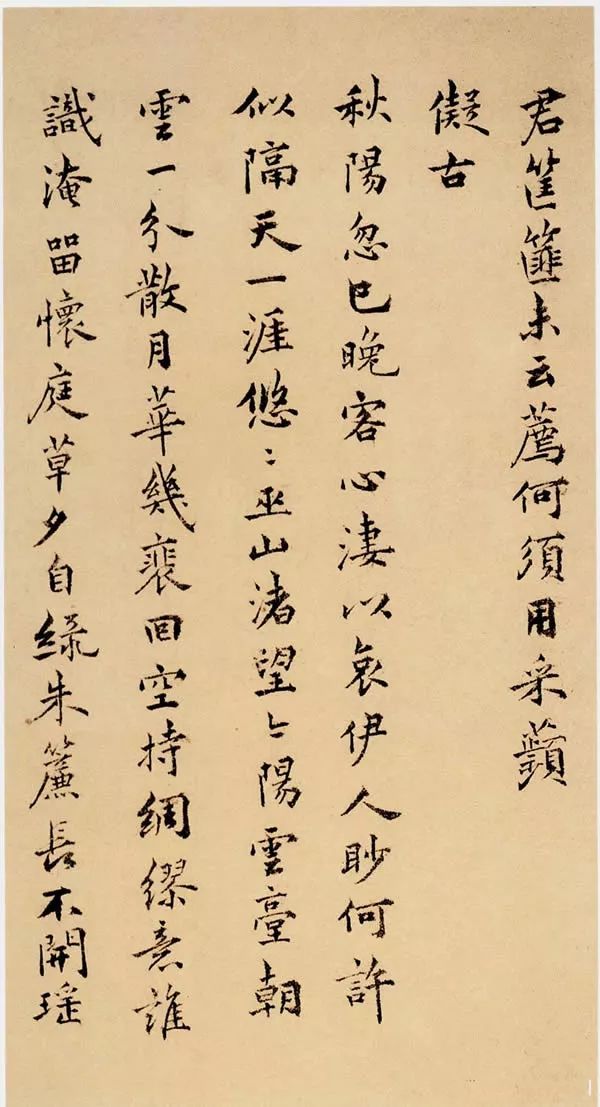 君筐篚未云薦何須用采蘋
儗古
秋陽忽已晚客心淒以哀伊人眇何許
似隔天一涯悠〻巫山渚望〻陽雲臺朝
雲一分散月華幾裴回空持綢繆意誰
識淹留懷庭草夕自綠朱簾長不開瑶